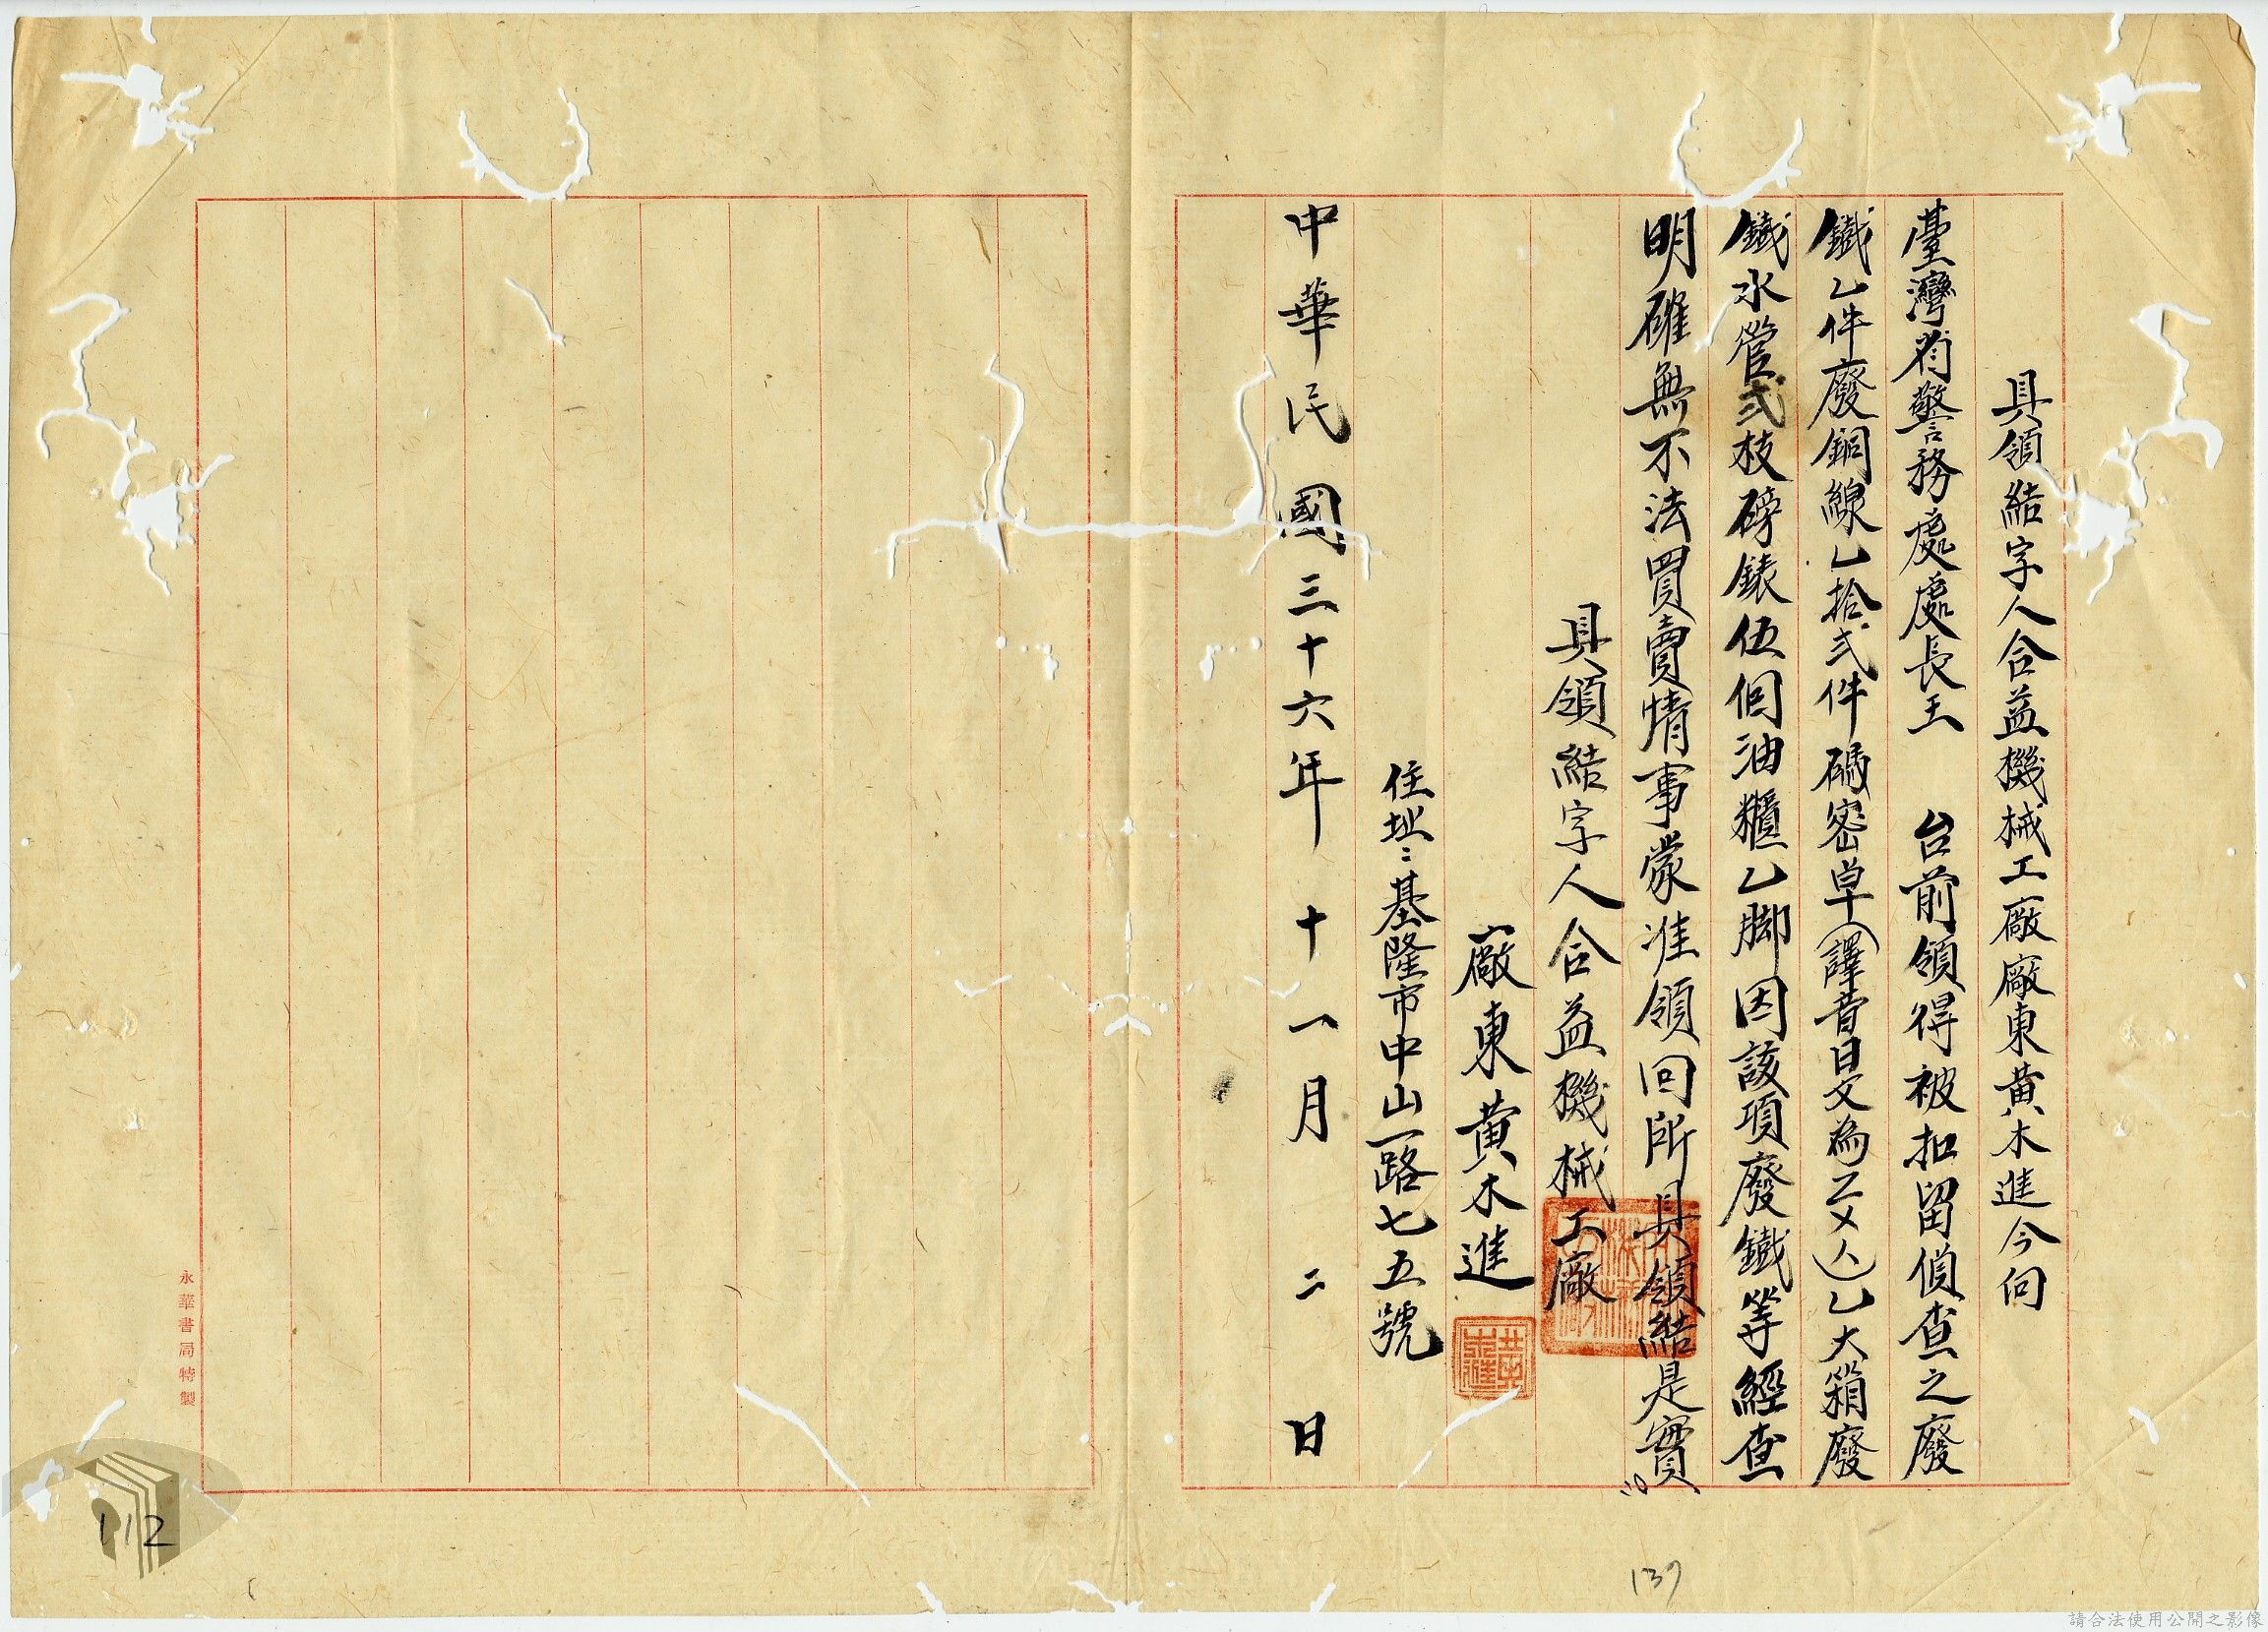 具領結字人合益機械工廠廠東黃木進今向
臺灣省警務處處長王　台前領得被扣留偵查之廢
鐵乙件廢銅線乙拾弍件碼密卓(譯音日文為ㄛㄨ人)乙大箱廢
鐵水管弍枝磅錶伍個油櫃乙脚因該項廢鐵等經查
明確無不法買賣情事蒙准領回所具領結是實
具領結字人合益機械工廠
廠東黃木進
住址：基隆市中山一路七五號
中華民國三十六年十一月二日
永華書局特製
112
137
請合法使用公開之影像